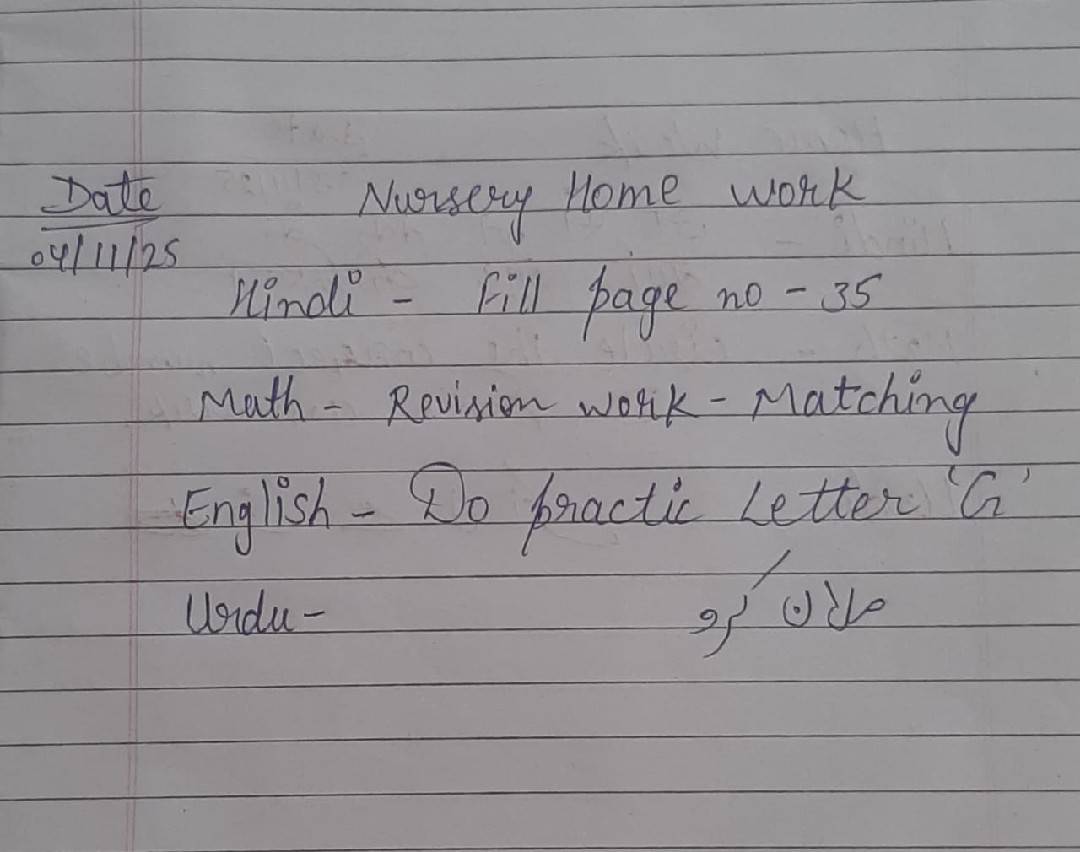 Date Nursery Home work
04/11/25
Hindi - Fill page no - 35
Math - Revision work - Matching
English - Do practic Letter 'G'
Urdu - ملان کرو